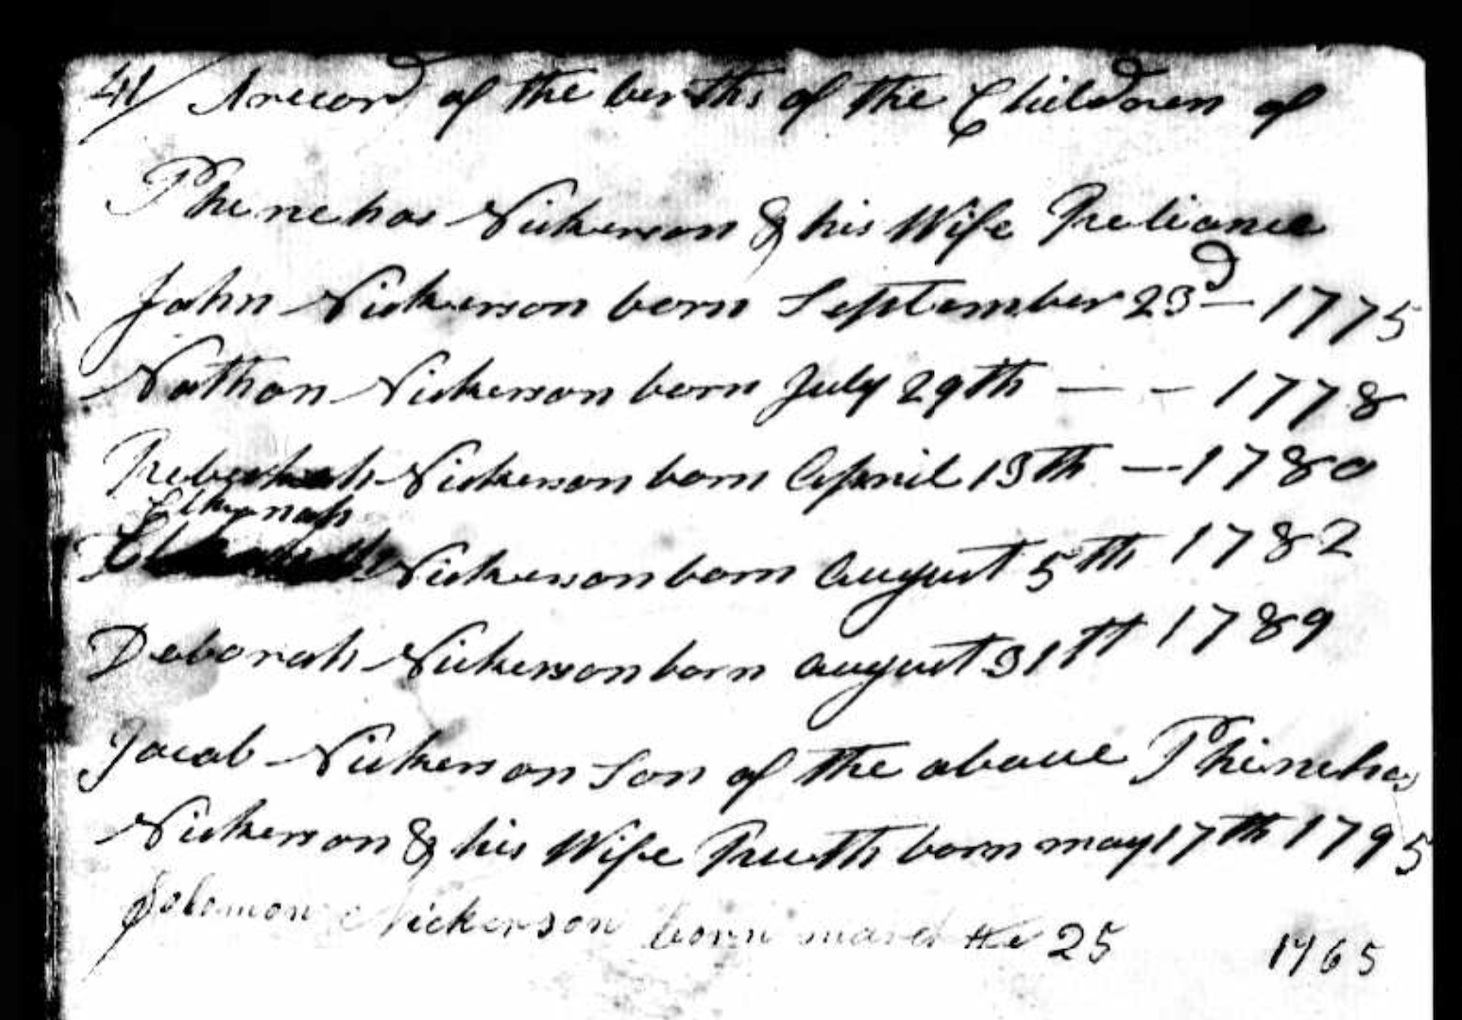 41/ A record of the berths of the Children of
Phinehas Nickerson & his Wife Reliance
John Nickerson born September 23d — 1775
Nathan Nickerson born July 29th — — 1778
Rebeckah Nickerson born April 13th — 1780
Elkanah
Nickerson born August 5th 1782
Deborah Nickerson born August 31th 1789
Jacob Nickerson Son of the above Phinehas
Nickerson & his Wife Ruth born may 17th 1795
Solomon Nickerson born march the 25 1765